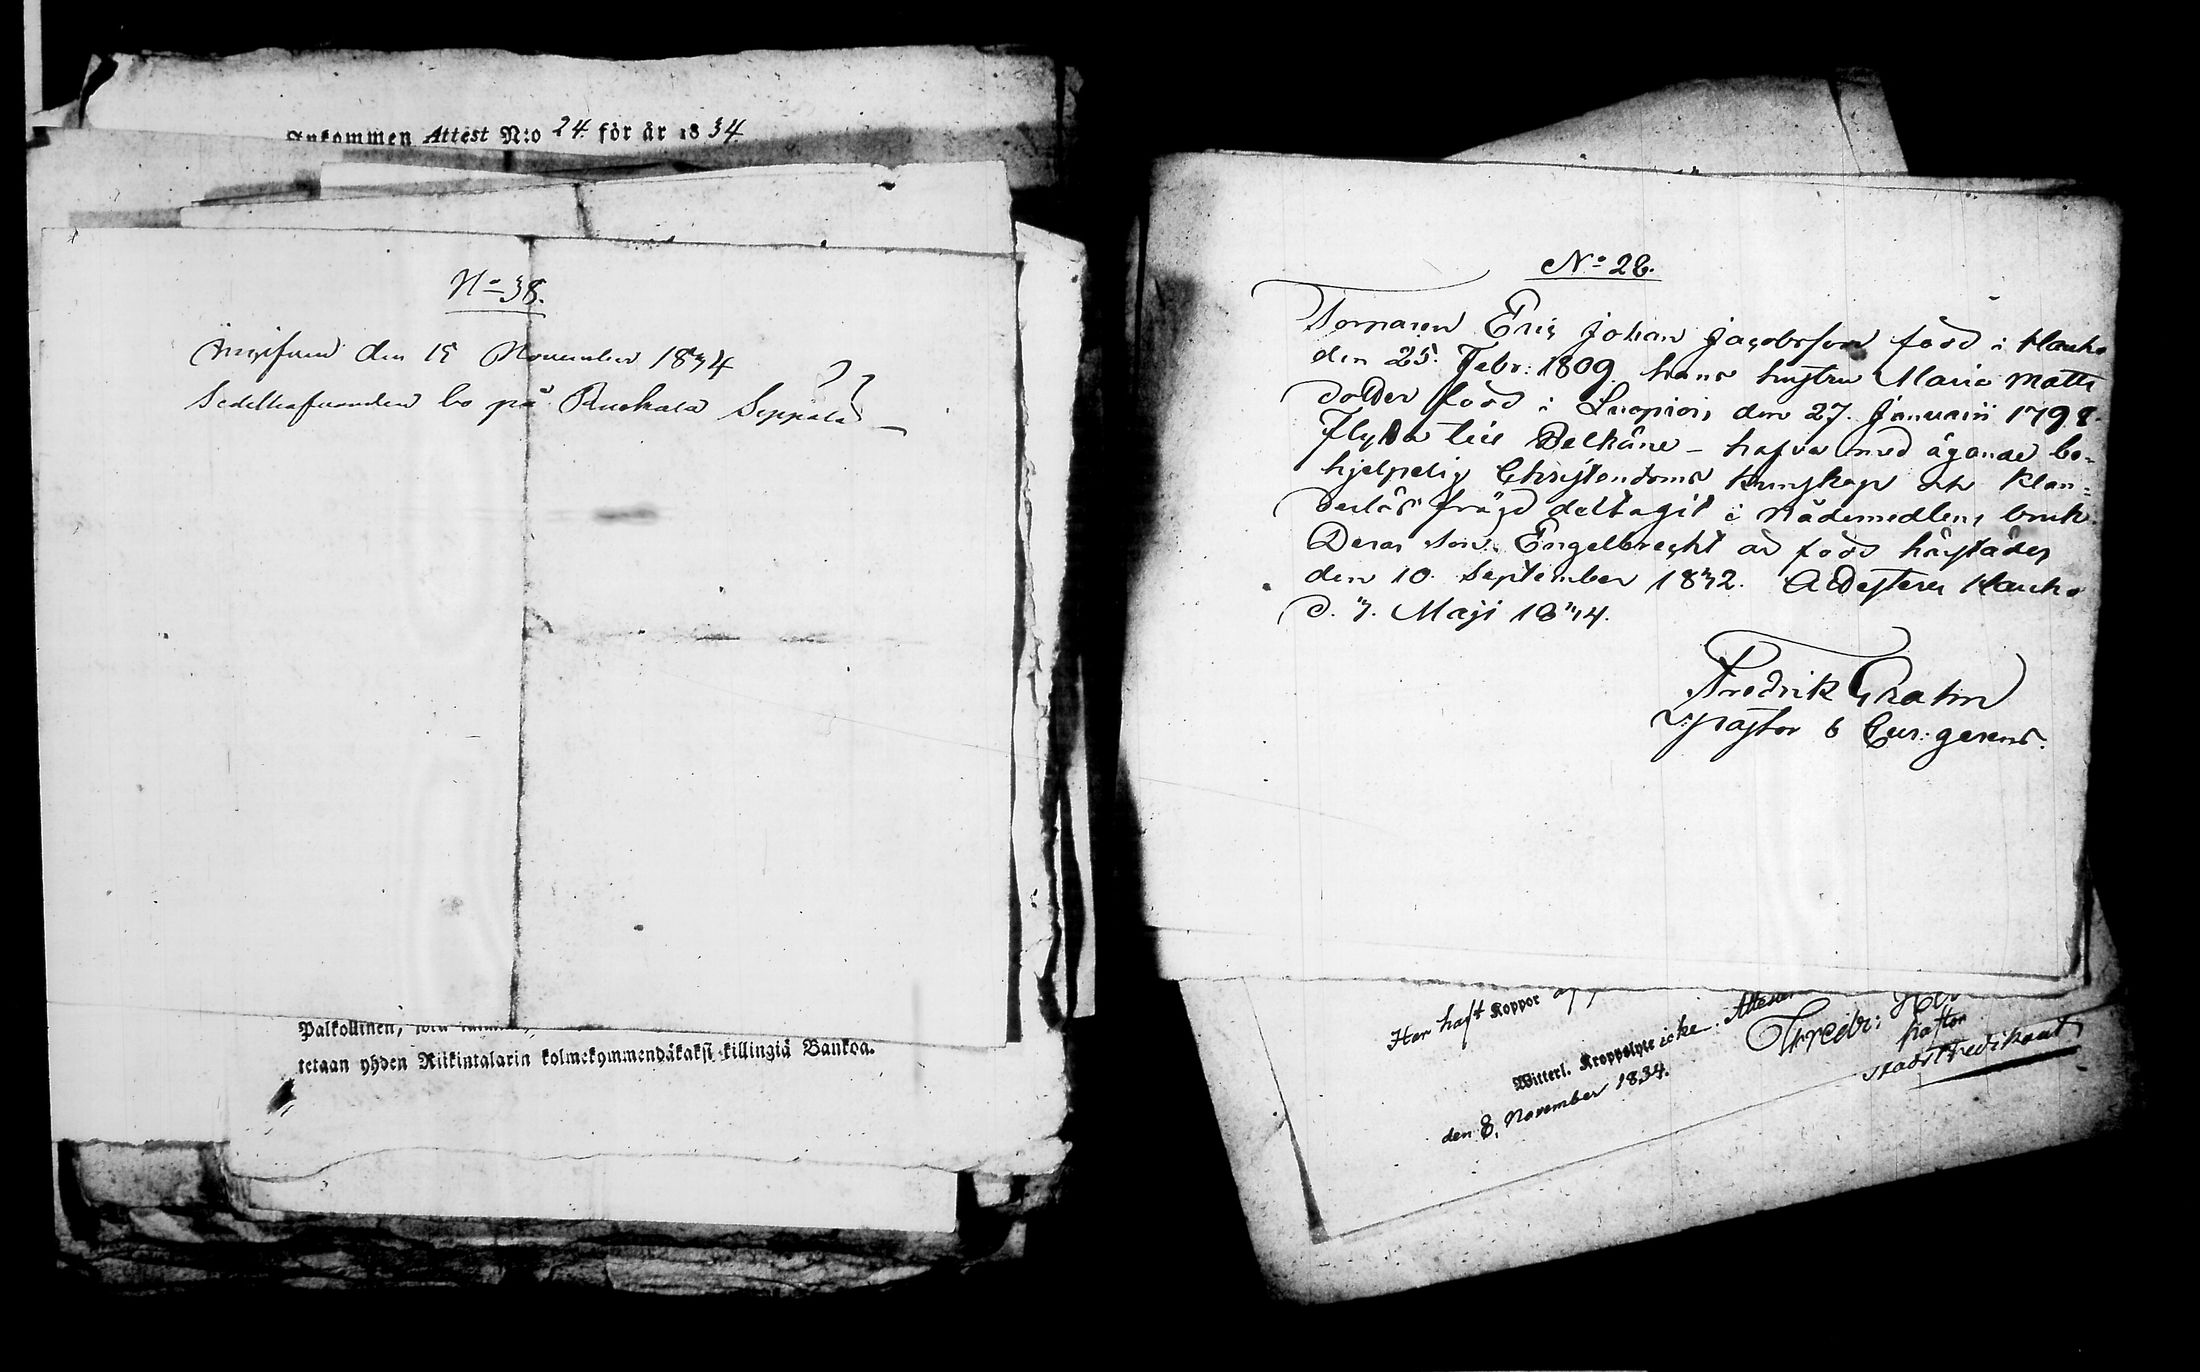 Ankommen Attest N:o 24. för år 1834.
N:o 38.
den 15 November 1834
Sedelhafvanden bo på Ruokala Seppälä
Palkollinen,
tetaan yhden Riikintalarin kolmekymmendäkaksi killingiä Bankoa.
N:o 28.
Sornaren Eric Johan Jacobsson född i Hauho
den 25. Febr: 1809. hans hustru Maria Matts
dotter född i Luopiois den 27. Januarii 1798.
flytta till Pelkäne – hafva med ägande be=
hjelpelig Christendoms kunskap och klan=
derlös frägd deltagit i Nådemedlens bruk.
Deras son Engelbrecht är född härstädes
den 10. September 1832. Attesterar Hauho
d. 7. Maji 1834.
Fredrik Grahn
Pastor & Cur. gerens.
Har haft Koppor
Witterl. Kroppslyte icke. Attesterar
den 8. November 1834.
Fredr:
Pastor
Stadspredikant